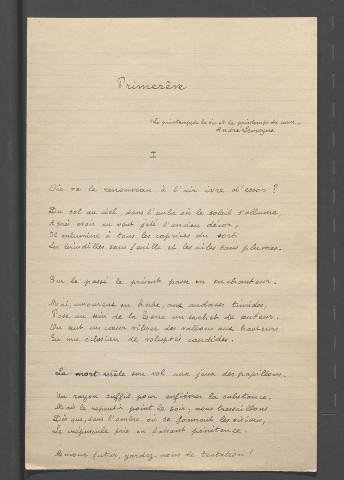 Primerêve
"Le printemps de la vie et le printemps du cœur"
André Lemoyne
I
Où va le renouveau à l'air ivre d'essor ?
Du sol au ciel, dans l'aube où le soleil s'allume,
Après avoir au vent jeté l'ancien décor,
Il enlumine à tous les caprices du sort
Les brindilles sans feuille et les ailes sans plumes.
Sur le passé le présent passe en enchanteur.
Mai, amoureux en herbe, aux audaces timides,
Pose au sein de la terre un sachet de senteur.
On sent un cœur vibrer des vallons aux hauteurs
En une éclosion de voluptés candides.
La mort mêle son vol aux jeux des papillons.
Un rayon suffit pour enfiévrer la substance,
Mais le repentir point le soir, nous tressaillons
Dès que, dans l'ombre où se forment les
Le crépuscule prie en faisant pénitence.
futur, gardez-nous de tentation !